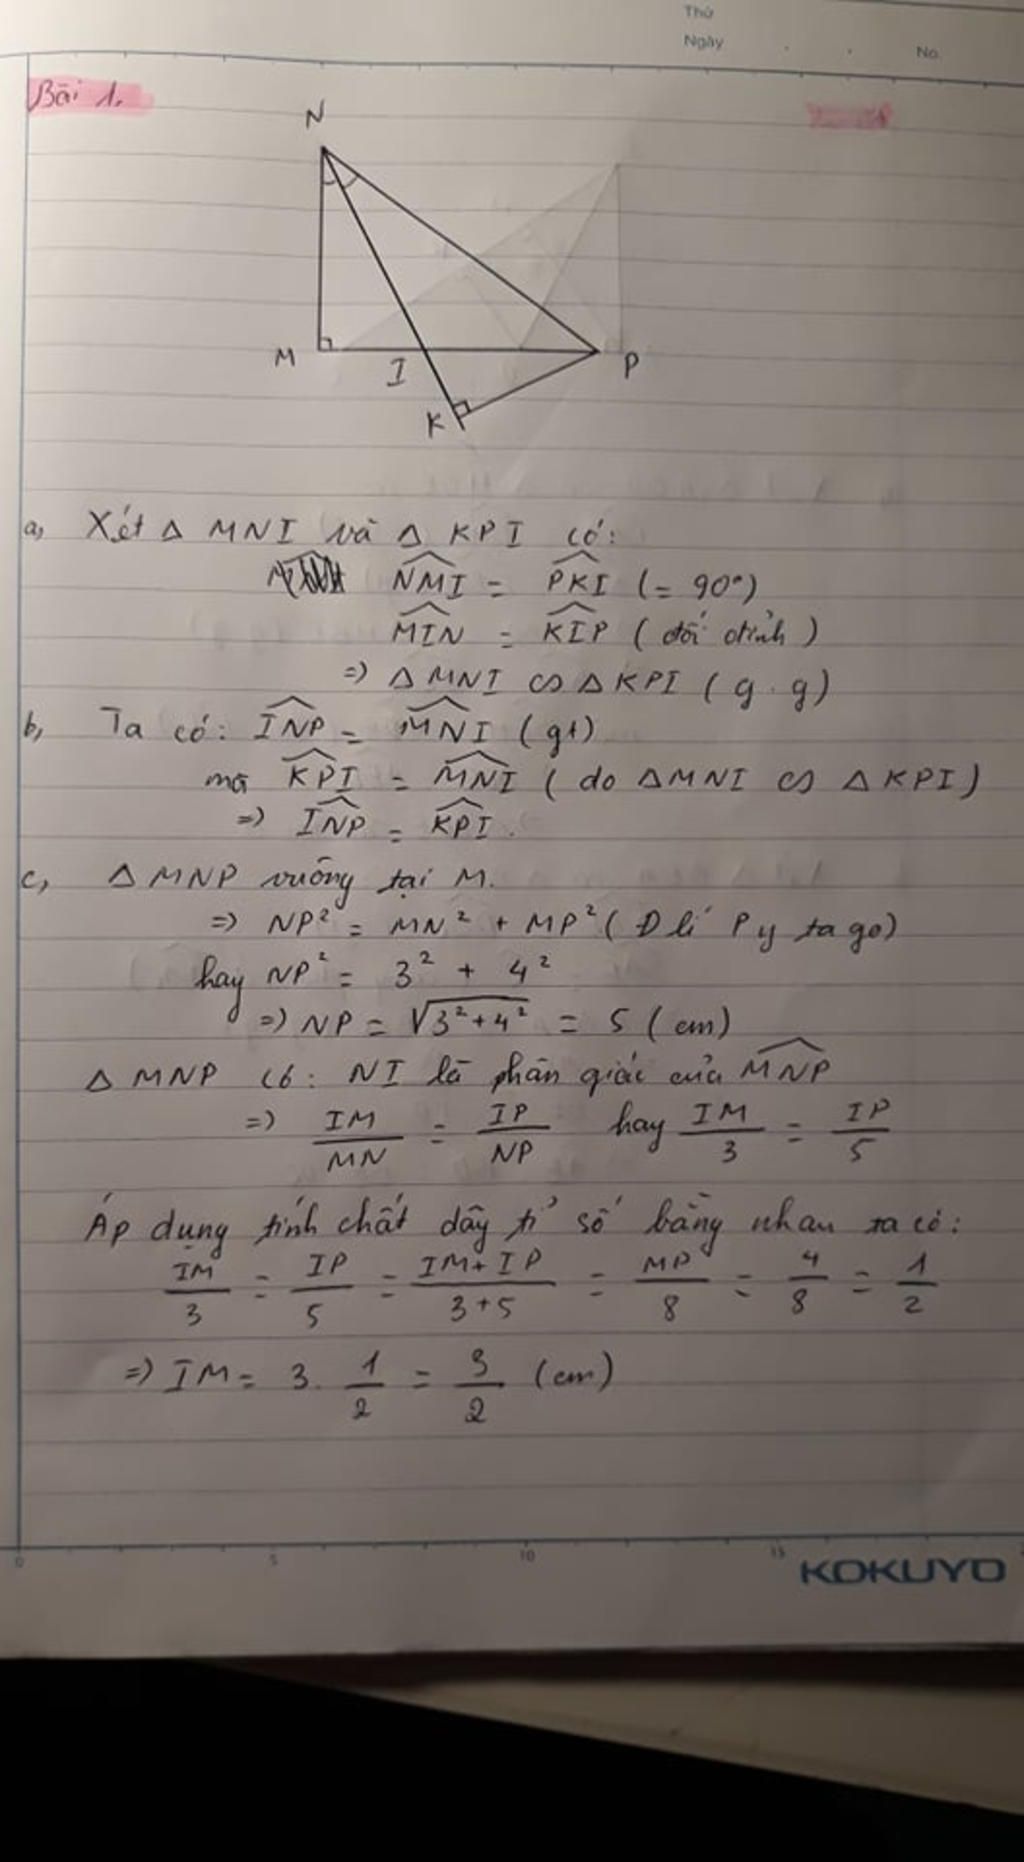 Thứ
Ngày . . No.
Bài 1.
N
M
I
P
K
a, Xét Δ MNI và Δ KPI có:
NMI = PKI (= 90°)
MIN = KIP (đối đỉnh)
=) Δ MNI ∽ Δ KPI (g.g)
b, Ta có: INP = MNI (gt)
mà KPI = MNI (do ΔMNI ∽ ΔKPI)
=) INP = KPI.
c, Δ MNP vuông tại M.
=) NP² = MN² + MP² (Đ lí Pytago)
hay NP² = 3² + 4²
=) NP = √3²+4² = 5 (cm)
Δ MNP có: NI là phân giác của MNP
=) IM/MN = IP/NP hay IM/3 = IP/5
Áp dụng tính chất dãy tỉ số bằng nhau ta có:
IM/3 = IP/5 = IM+IP/3+5 = MP/8 = 4/8 = 1/2
=) IM = 3. 1/2 = 3/2 (cm)
0 5 10 15
KOKUYO